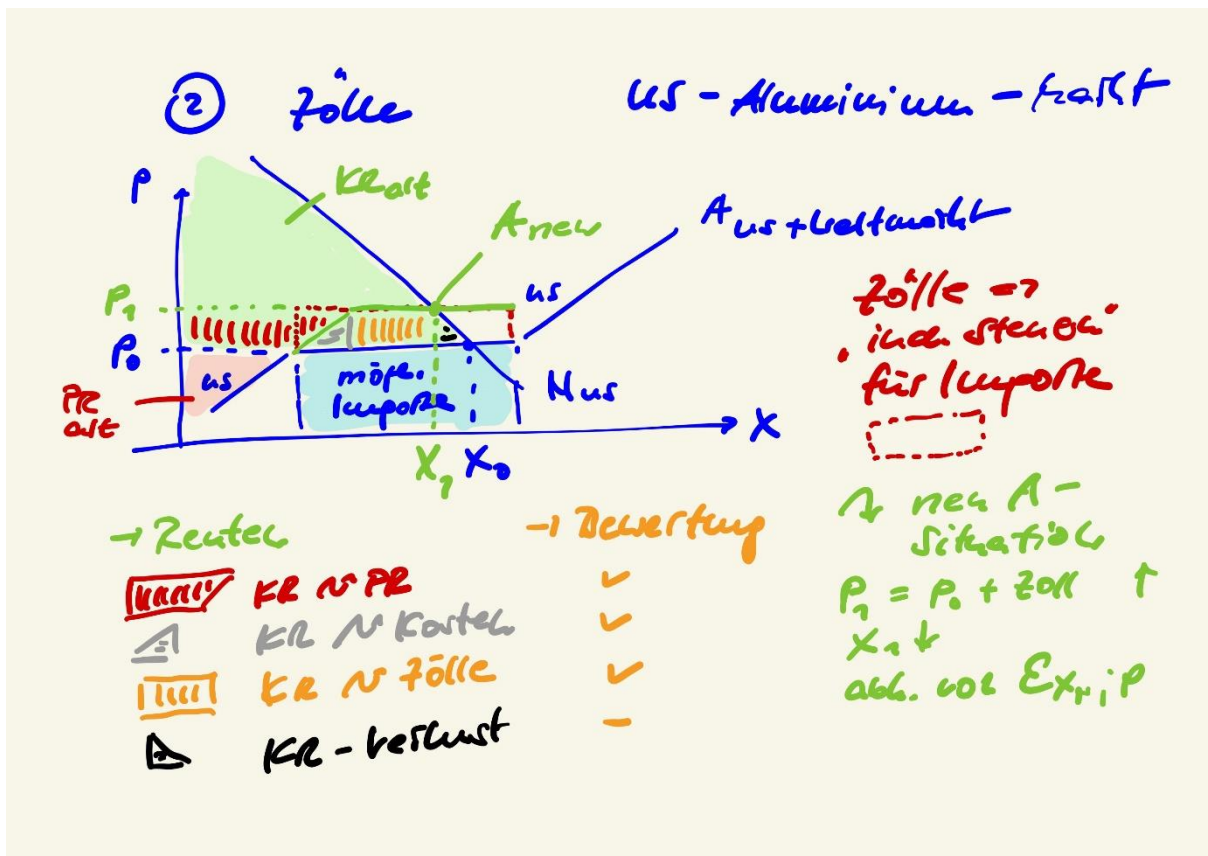 ② Zölle
US - Aluminium - Markt
P
KR alt
A new
A US + Weltmarkt
P₁
US
P₀
US
mögl.
Importe
N US
PR
alt
X₁ X₀
X
Zölle =>
"ind. Steuern"
für Importe
→ neu A -
Situation
P₁ = P₀ + Zoll ↑
X₁ ↓
abh. von ε X_N; P
→ Renten
KR ~> PR
KR ~> Kosten
KR ~> Zölle
KR - Verlust
→ Bewertung
✓
✓
✓
–